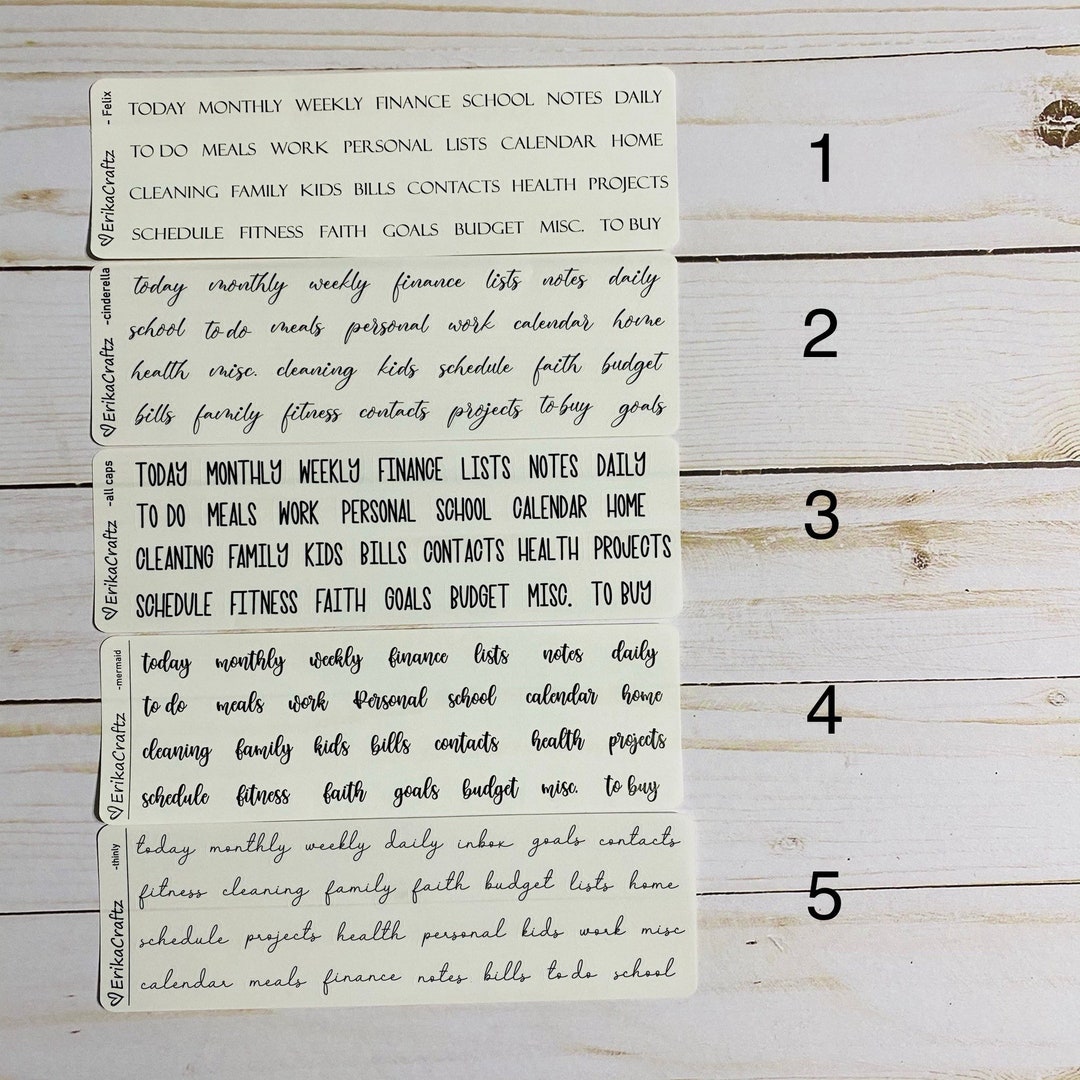 ♡ErikaCraftz - Felix
TODAY MONTHLY WEEKLY FINANCE SCHOOL NOTES DAILY
TO DO MEALS WORK PERSONAL LISTS CALENDAR HOME
CLEANING FAMILY KIDS BILLS CONTACTS HEALTH PROJECTS
SCHEDULE FITNESS FAITH GOALS BUDGET MISC. TO BUY
1
♡ErikaCraftz -cinderella
today monthly weekly finance lists notes daily
school to do meals personal work calendar home
health misc. cleaning kids schedule faith budget
bills family fitness contacts projects to buy goals
2
♡ErikaCraftz -all caps
TODAY MONTHLY WEEKLY FINANCE LISTS NOTES DAILY
TO DO MEALS WORK PERSONAL SCHOOL CALENDAR HOME
CLEANING FAMILY KIDS BILLS CONTACTS HEALTH PROJECTS
SCHEDULE FITNESS FAITH GOALS BUDGET MISC. TO BUY
3
♡ErikaCraftz -mermaid
today monthly weekly finance lists notes daily
to do meals work Personal school calendar home
cleaning family kids bills contacts health projects
schedule fitness faith goals budget misc. to buy
4
♡ErikaCraftz -thinly
today monthly weekly daily inbox goals contacts
fitness cleaning family faith budget lists home
schedule projects health personal kids work misc
calendar meals finance notes bills to do school
5